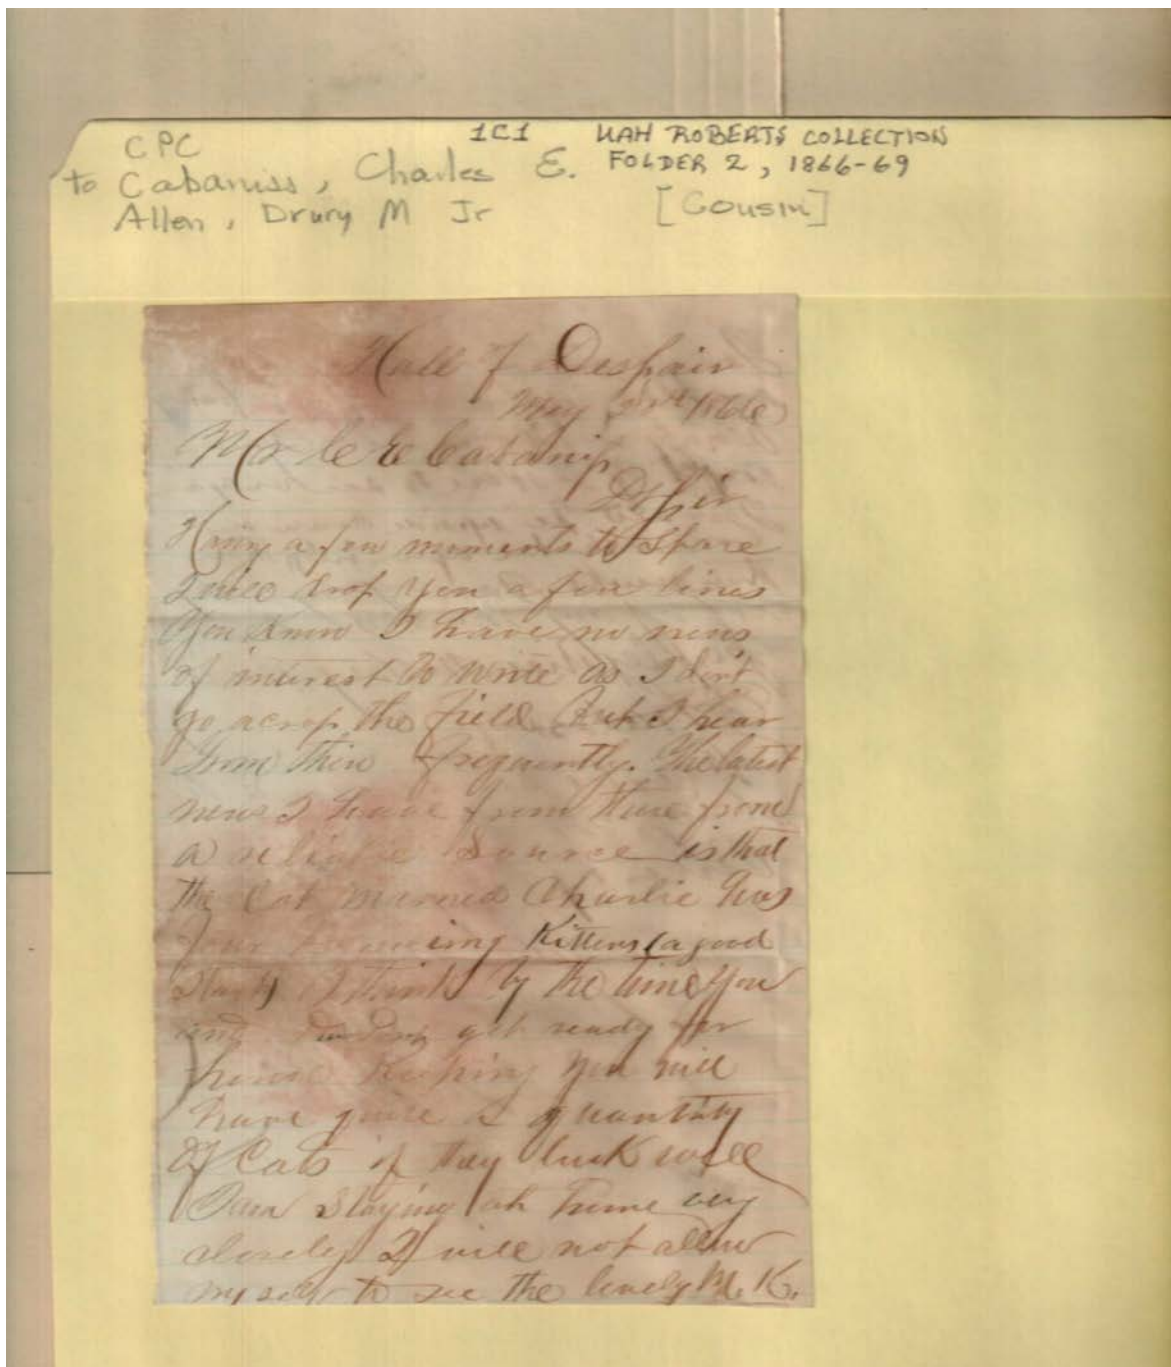 CPC 1C1 UAH ROBERTS COLLECTION
to Cabaniss, Charles E. FOLDER 2, 1866-69
Allen, Drury M Jr [Cousin]
Hall of Despair
May 1866
Mr C E Cabaniss
Dr Sir
Having a few moments to spare
I will drop you a few lines
You know I have no news
of interest to write as I don't
go across the field But I hear
from there frequently. The latest
news I have from there from
a reliable source is that
the Cat named Charlie has
four Kittens (a good
start) I think by the time you
and get ready for
house keeping you will
have quite a quantity
of Cats if they luck well
I am staying at home very
closely I will not allow
my self to see the lovely M. K.